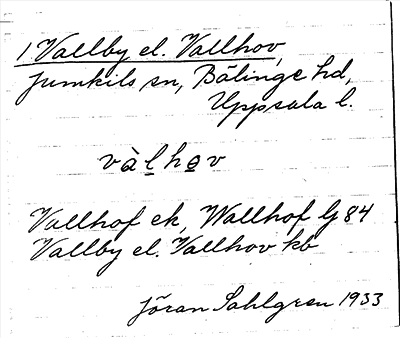 1 Vallby el. Vallhov,
Jumkils sn, Bälinge hd,
Uppsala l.
vàl̲ho̲v
Vallhof ek, Wallhof Gj 84
Vallby el. Vallhov kb
Jöran Sahlgren 1933